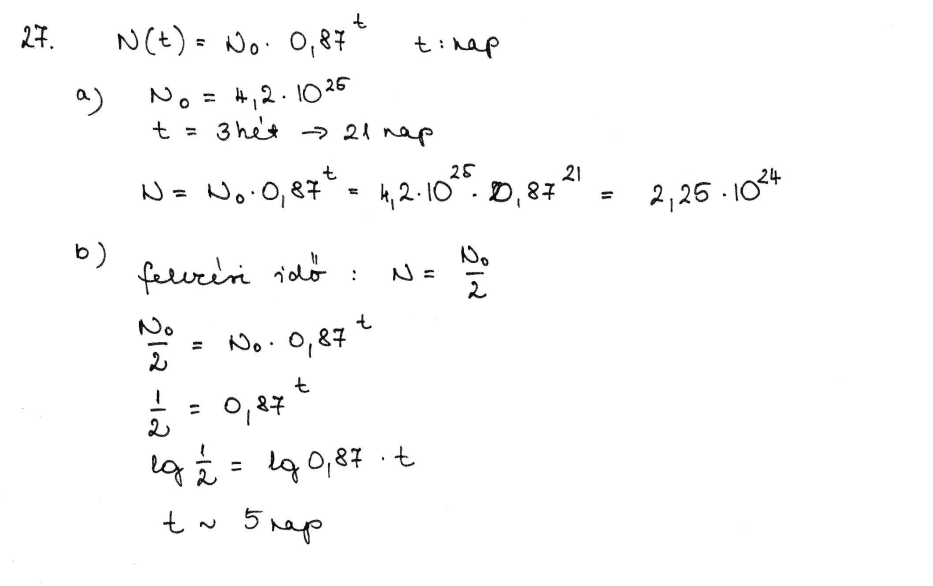 27. N(t) = N₀ · 0,87^t t : nap
a) N₀ = 4,2 · 10^25
t = 3 hét → 21 nap
N = N₀ · 0,87^t = 4,2 · 10^25 · 0,87^21 = 2,25 · 10^24
b)
felezési idő : N = N₀/2
N₀/2 = N₀ · 0,87^t
1/2 = 0,87^t
lg 1/2 = lg 0,87 · t
t ~ 5 nap